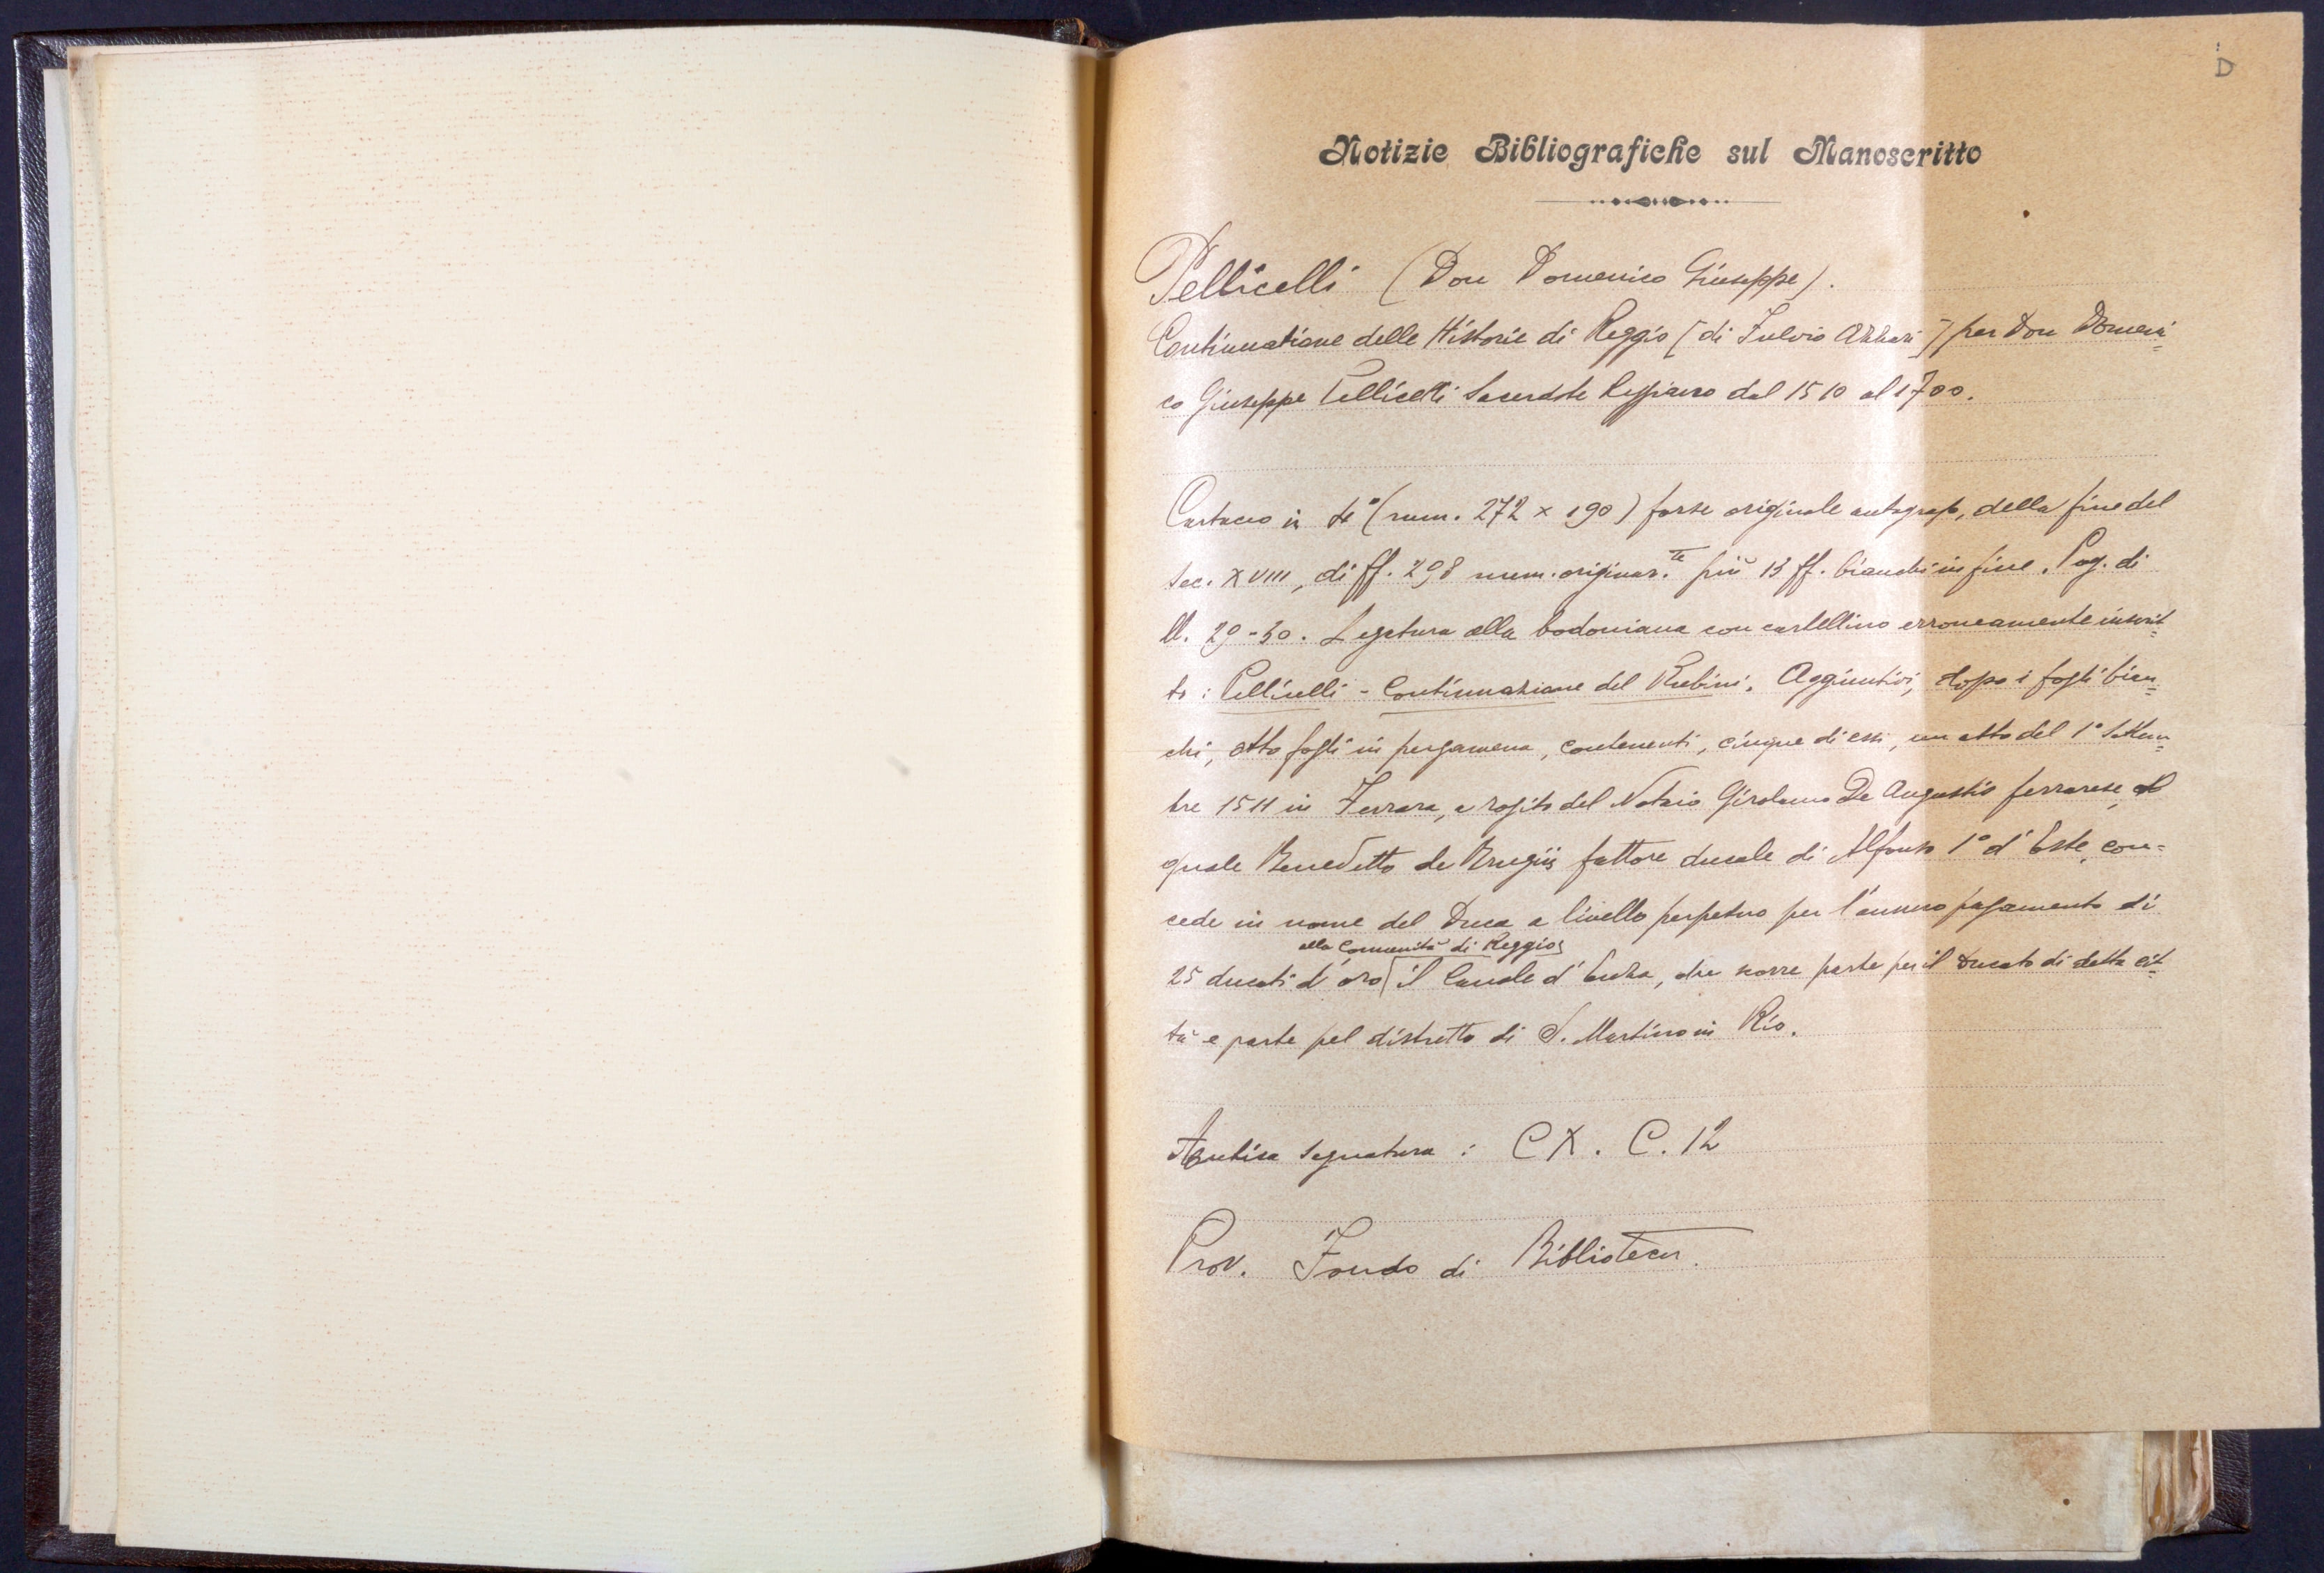 D
Notizie Bibliografiche sul Manoscritto
Pellicelli (Don Domenico Giuseppe).
Continuatione delle Historie di Reggio [di Fulvio Azzari] per Don Domeni=
co Giuseppe Pellicelli Sacerdote Reggiano dal 1510 al 1700.
Cartaceo in 4° (mm. 272 x 190) forse originale autografo, della fine del
sec. XVIII, di ff. 298 num. originar.te più 13 ff. bianchi in fine. Pag. di
ll. 29-30. Legatura alla bodoniana con cartellino erroneamente inscrit=
to: Pellicelli - Continuazione del Rubini. Aggiuntivi, dopo i fogli bian=
chi, otto fogli in pergamena, contenenti, cinque di essi, un atto del 1° Settem=
bre 1511 in Ferrara, a rogito del Notaio Girolamo De Augustis ferrarese, col
quale Benedetto de Brugiis fattore ducale di Alfonso 1° d'Este, con=
cede in nome del Duca a livello perpetuo per l'annuo pagamento di
alla Comunità di Reggio
25 ducati d'oro il Canale d'Enza, che scorre parte per il Ducato di detta cit=
tà e parte pel distretto di S. Martino in Rio.
Antica segnatura: CX. C. 12
Prov. Fondo di Biblioteca.